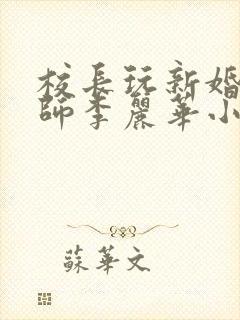 校長玩新婚
師李麗華小
蘇華文